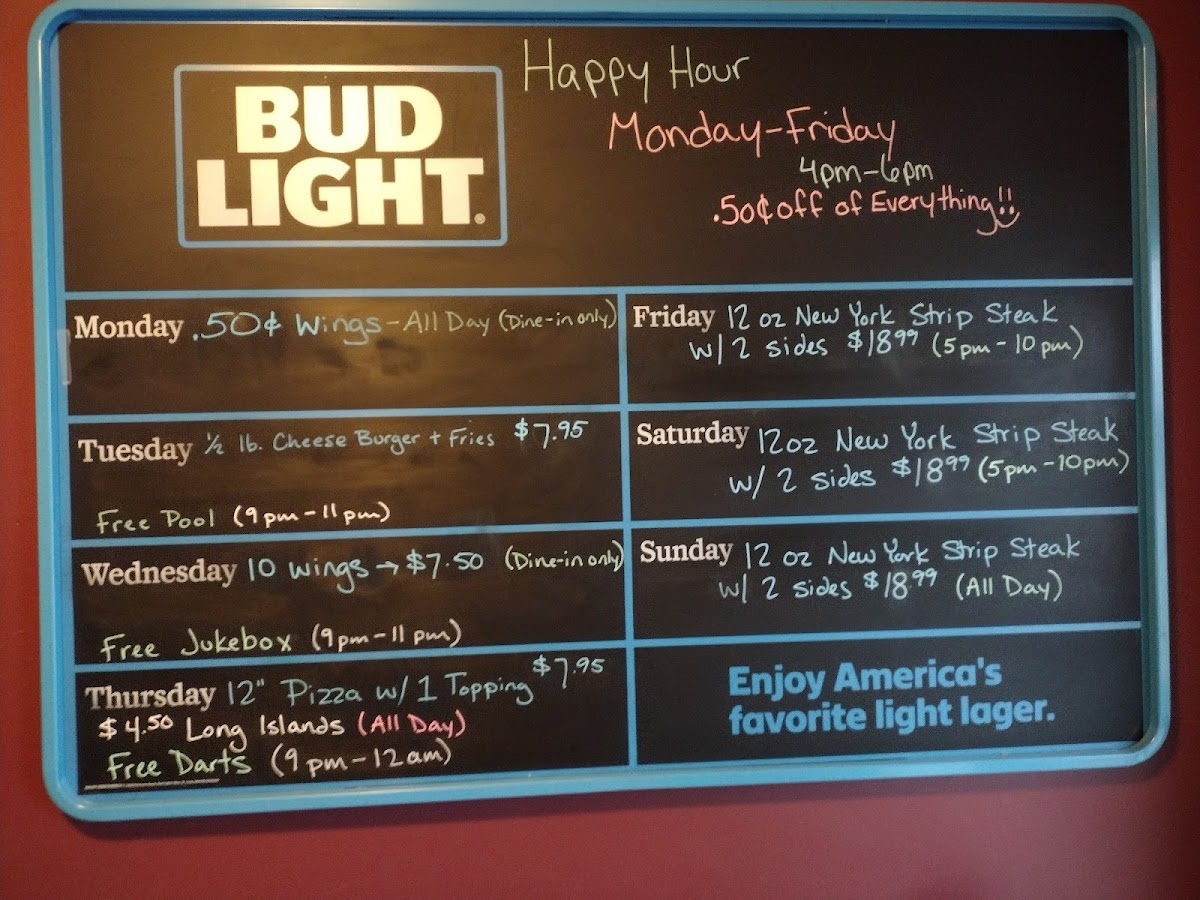 BUD
LIGHT.
Happy Hour
Monday-Friday
4pm-6pm
.50¢ off of Everything!!
Monday .50¢ Wings - All Day (Dine-in only)
Tuesday ½ lb. Cheese Burger + Fries $7.95
Free Pool (9pm-11pm)
Wednesday 10 wings → $7.50 (Dine-in only)
Free Jukebox (9pm-11pm)
Thursday 12" Pizza w/ 1 Topping $7.95
$4.50 Long Islands (All Day)
Free Darts (9pm-12am)
Friday 12 oz New York Strip Steak
w/ 2 sides $18.99 (5pm-10pm)
Saturday 12oz New York Strip Steak
w/ 2 sides $18.99 (5pm-10pm)
Sunday 12 oz New York Strip Steak
w/ 2 sides $18.99 (All Day)
Enjoy America's
favorite light lager.